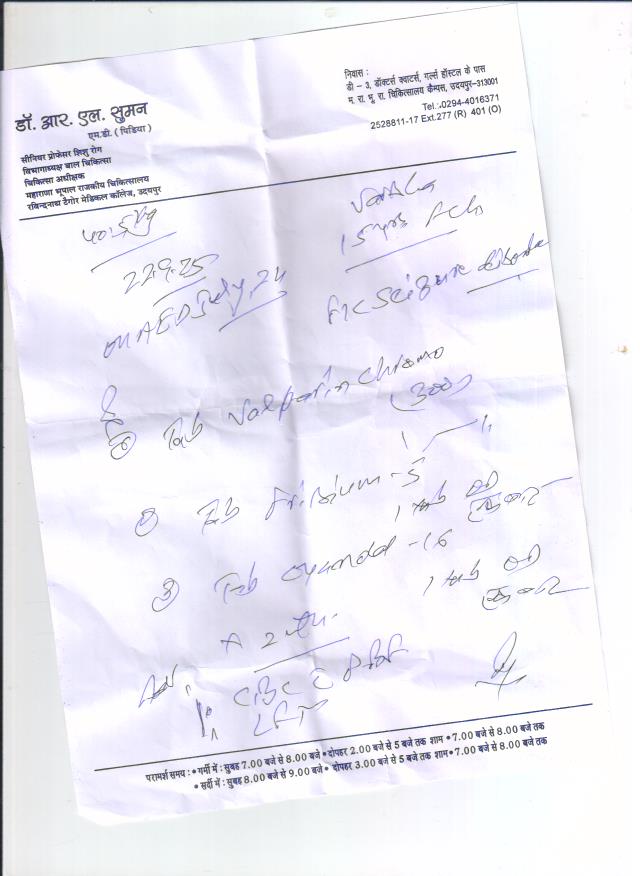 डॉ. आर. एल. सुमन
एम.डी. ( पिडिया )
सीनियर प्रोफेसर शिशु रोग
विभागाध्यक्ष बाल चिकित्सा
चिकित्सा अधीक्षक
महाराणा भूपाल राजकीय चिकित्सालय
रविन्द्रनाथ टैगोर मेडिकल कॉलेज, उदयपुर
निवास :
डी – 3, डॉक्टर्स क्वाटर्स, गर्ल्स हॉस्टल के पास
म. रा. भू. रा. चिकित्सालय कैम्पस, उदयपुर–313001
Tel.:0294-4016371
2528811-17 Ext.277 (R) 401 (O)
22.9.25
15 yrs
on AED July 24
Seizure
① Tab Valparin Chrono
(300)
② Tab Frisium-5
1 tab OD
③ Tab
1 tab OD
Adv.
CBC PBF
LFT
परामर्श समय : • गर्मी में : सुबह 7.00 बजे से 8.00 बजे • दोपहर 2.00 बजे से 5 बजे तक शाम • 7.00 बजे से 8.00 बजे तक
• सर्दी में : सुबह 8.00 बजे से 9.00 बजे • दोपहर 3.00 बजे से 5 बजे तक शाम • 7.00 बजे से 8.00 बजे तक